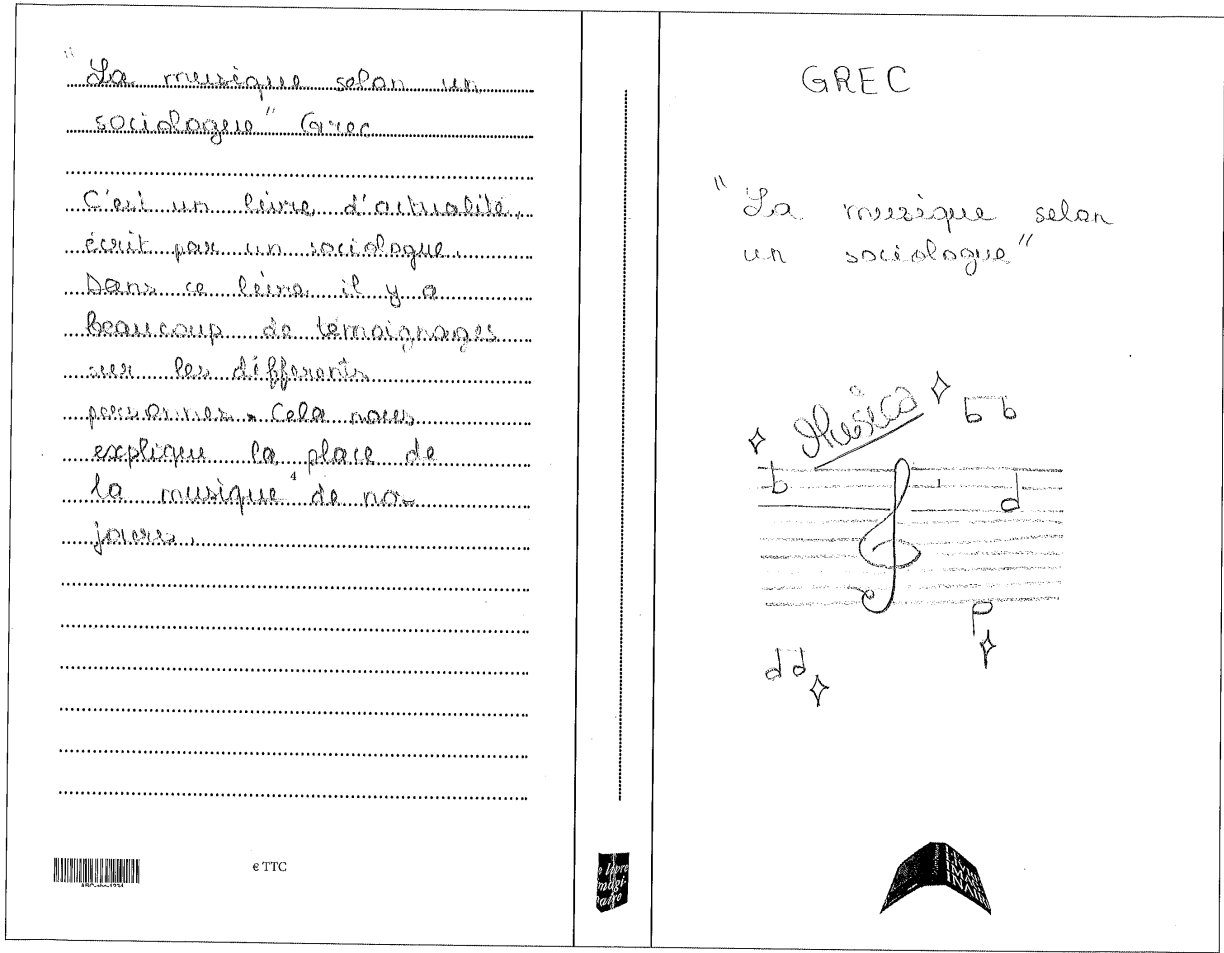 "La musique selon un
sociologue" Grec
C'est un livre d'actualité,
écrit par un sociologue.
Dans ce livre, il y a
beaucoup de témoignages
sur les différents
personnes. Cela nous
explique la place de
la musique 4 de nos
jours.
€ TTC
le livre
imagi-
naire
GREC
"La musique selon
un sociologue"
Musica